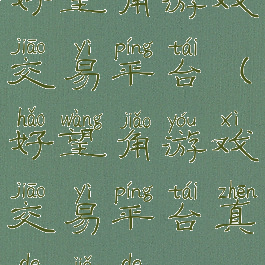 好望角游戏
jiāo yì píng tái
交易平台(
hǎo wàng jiǎo yóu xì
好望角游戏
jiāo yì píng tái zhēn
交易平台真
de de